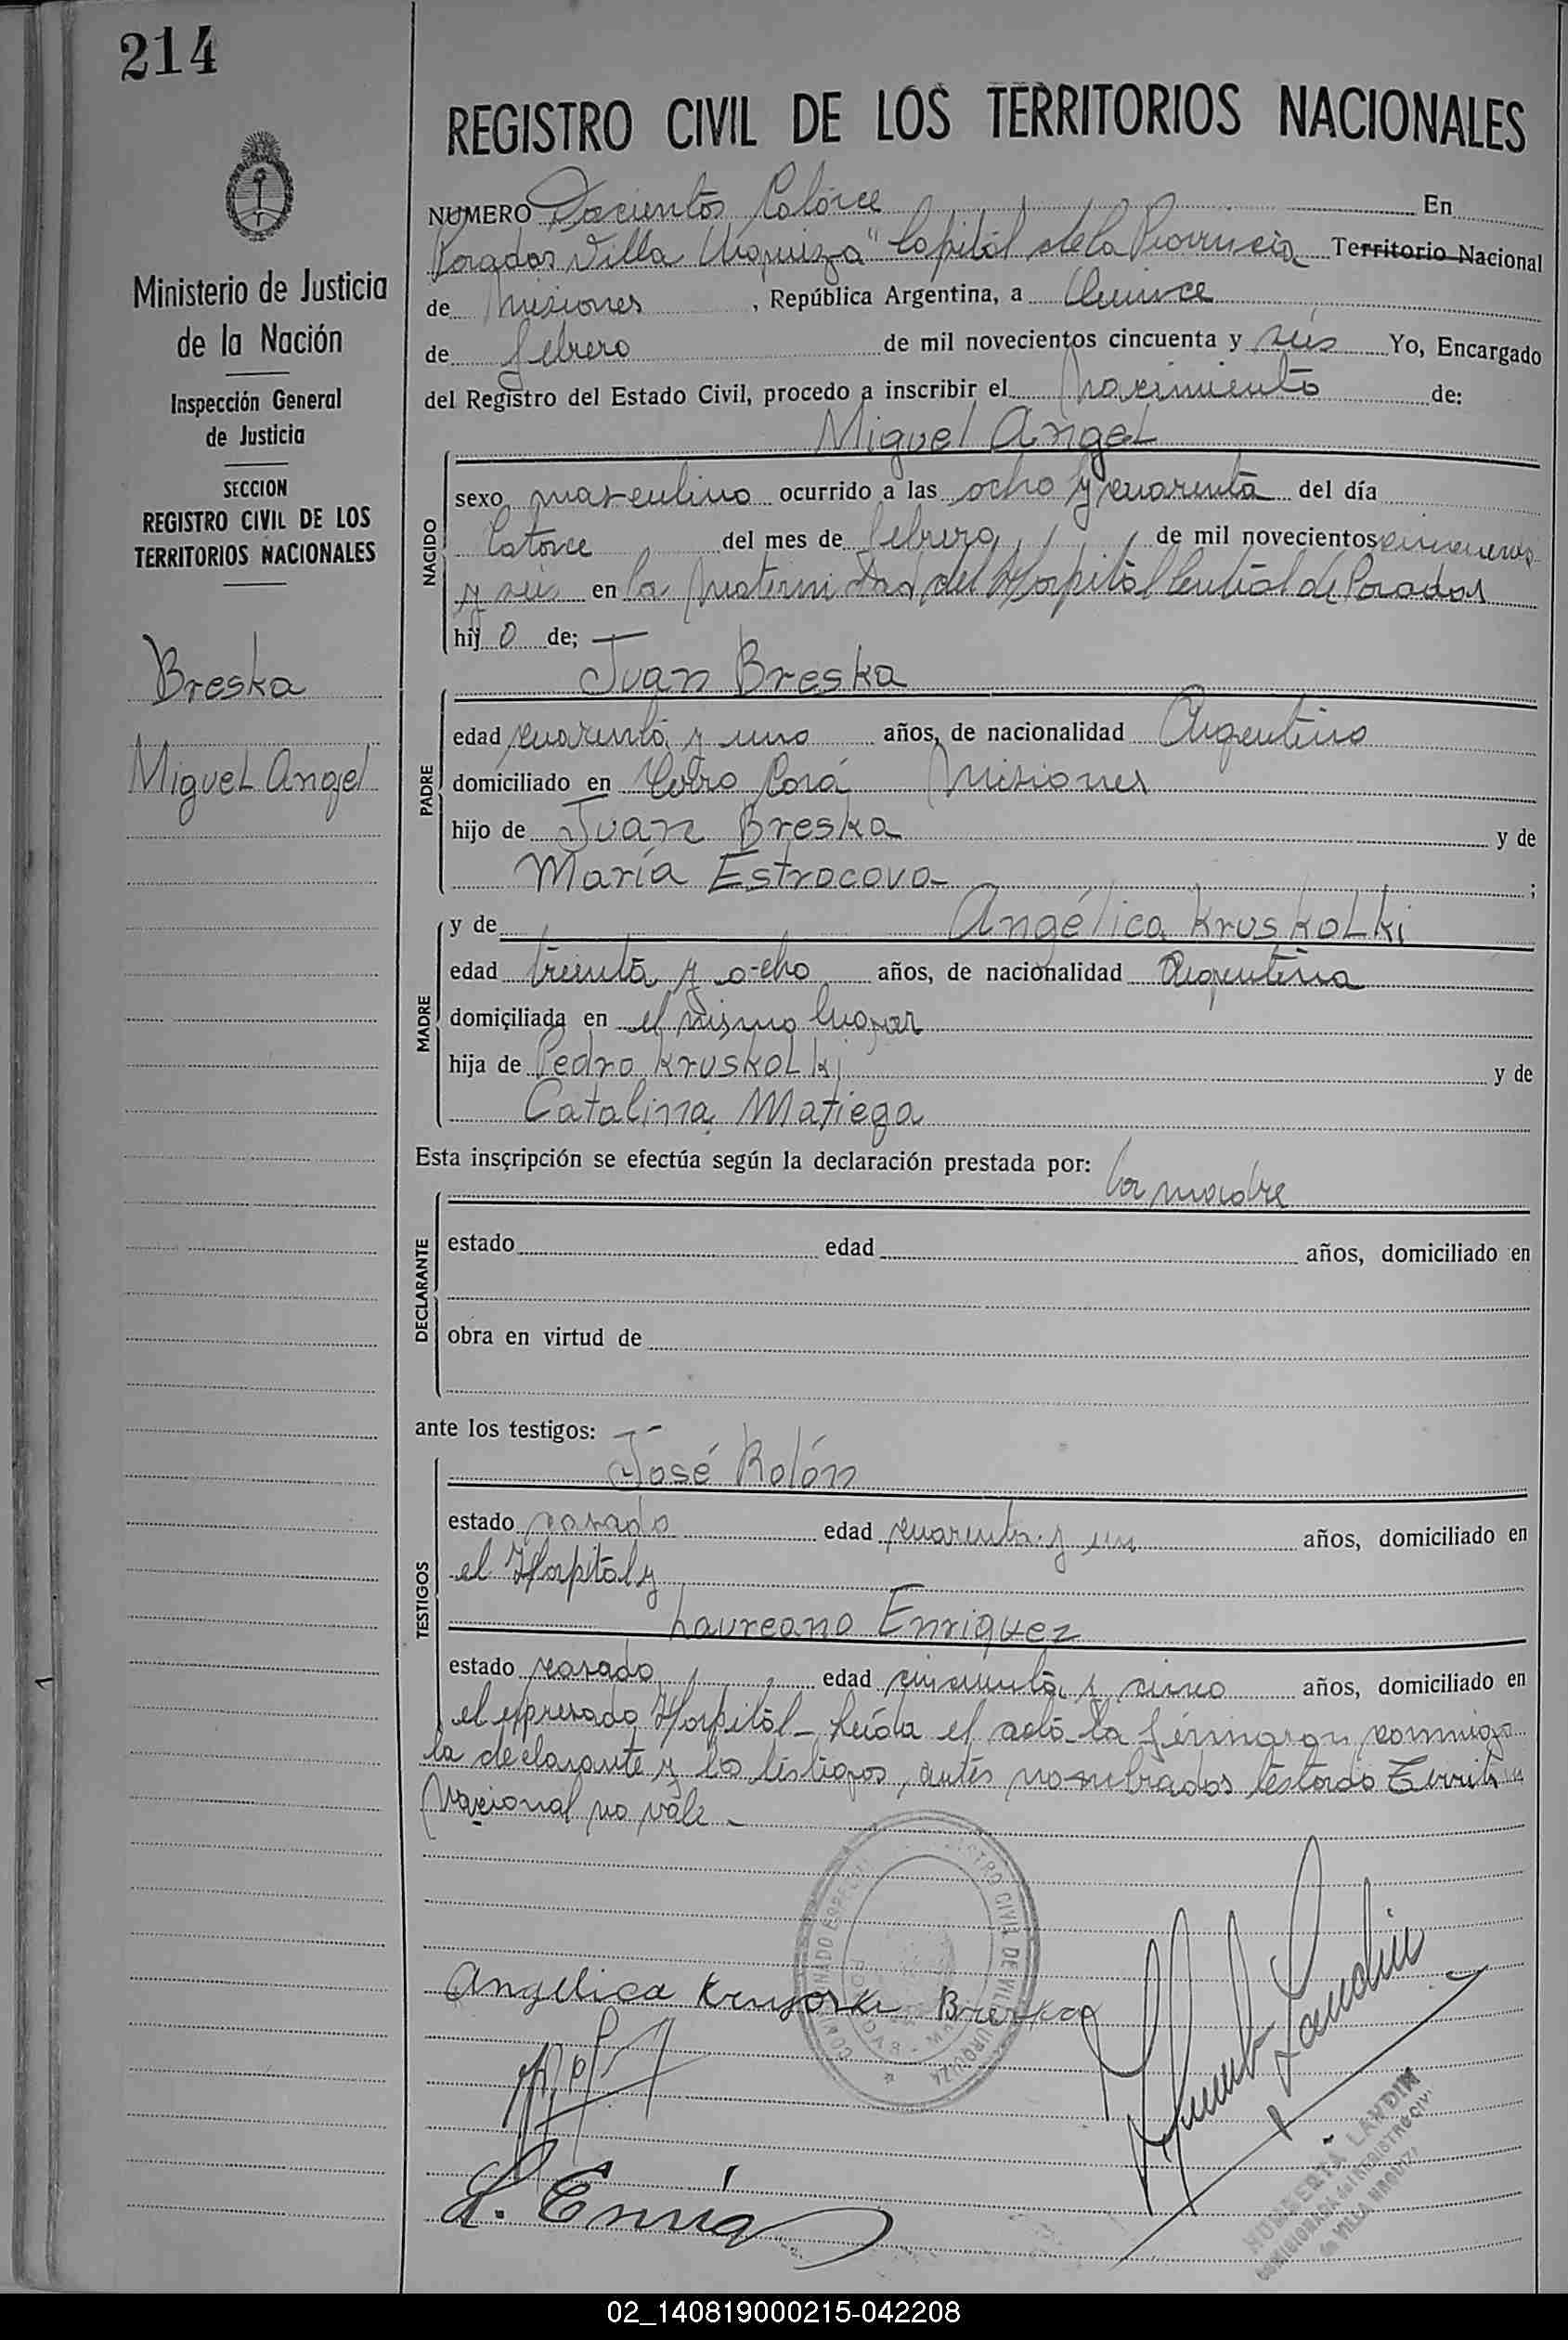 214
Ministerio de Justicia
de la Nación
Inspección General
de Justicia
SECCION
REGISTRO CIVIL DE LOS
TERRITORIOS NACIONALES
Breska
Miguel Angel
REGISTRO CIVIL DE LOS TERRITORIOS NACIONALES
NUMERO Docientos Catorce En
Posadas Villa Urquiza" Capital de la Provincia Territorio Nacional
de Misiones, República Argentina, a Quince
de febrero de mil novecientos cincuenta y seis Yo, Encargado
del Registro del Estado Civil, procedo a inscribir el Nacimiento de:
Miguel Angel
NACIDO
sexo masculino ocurrido a las ocho y cuarenta del día
Catorce del mes de febrero de mil novecientos cincuenta
y seis en la Maternidad del Hospital Central de Posadas
hijo de;
Juan Breska
PADRE
edad cuarenta y uno años, de nacionalidad Argentino
domiciliado en Cerro Corá Misiones
hijo de Juan Breska y de
María Estrocova;
y de Angélica Kruskolki
MADRE
edad treinta y ocho años, de nacionalidad Argentina
domiciliada en el mismo lugar
hija de Pedro Kruskolki y de
Catalina Matiega
Esta inscripción se efectúa según la declaración prestada por:
la madre
DECLARANTE
estado edad años, domiciliado en
obra en virtud de
ante los testigos:
José Rolón
TESTIGOS
estado casado edad cuarenta y un años, domiciliado en
el Hospital y
Laureano Enriquez
estado casado edad cincuenta y cinco años, domiciliado en
el expresado Hospital - Leída el acta la firmaron conmigo
la declarante y los testigos, antes nombrados testado Territorio
Nacional no vale -
Angelica Breska
L. Enriq
HUMBERTA LANDIN
COMISIONADA del REGISTRO CIV.
de VILLA URQUIZA
02_140819000215-042208